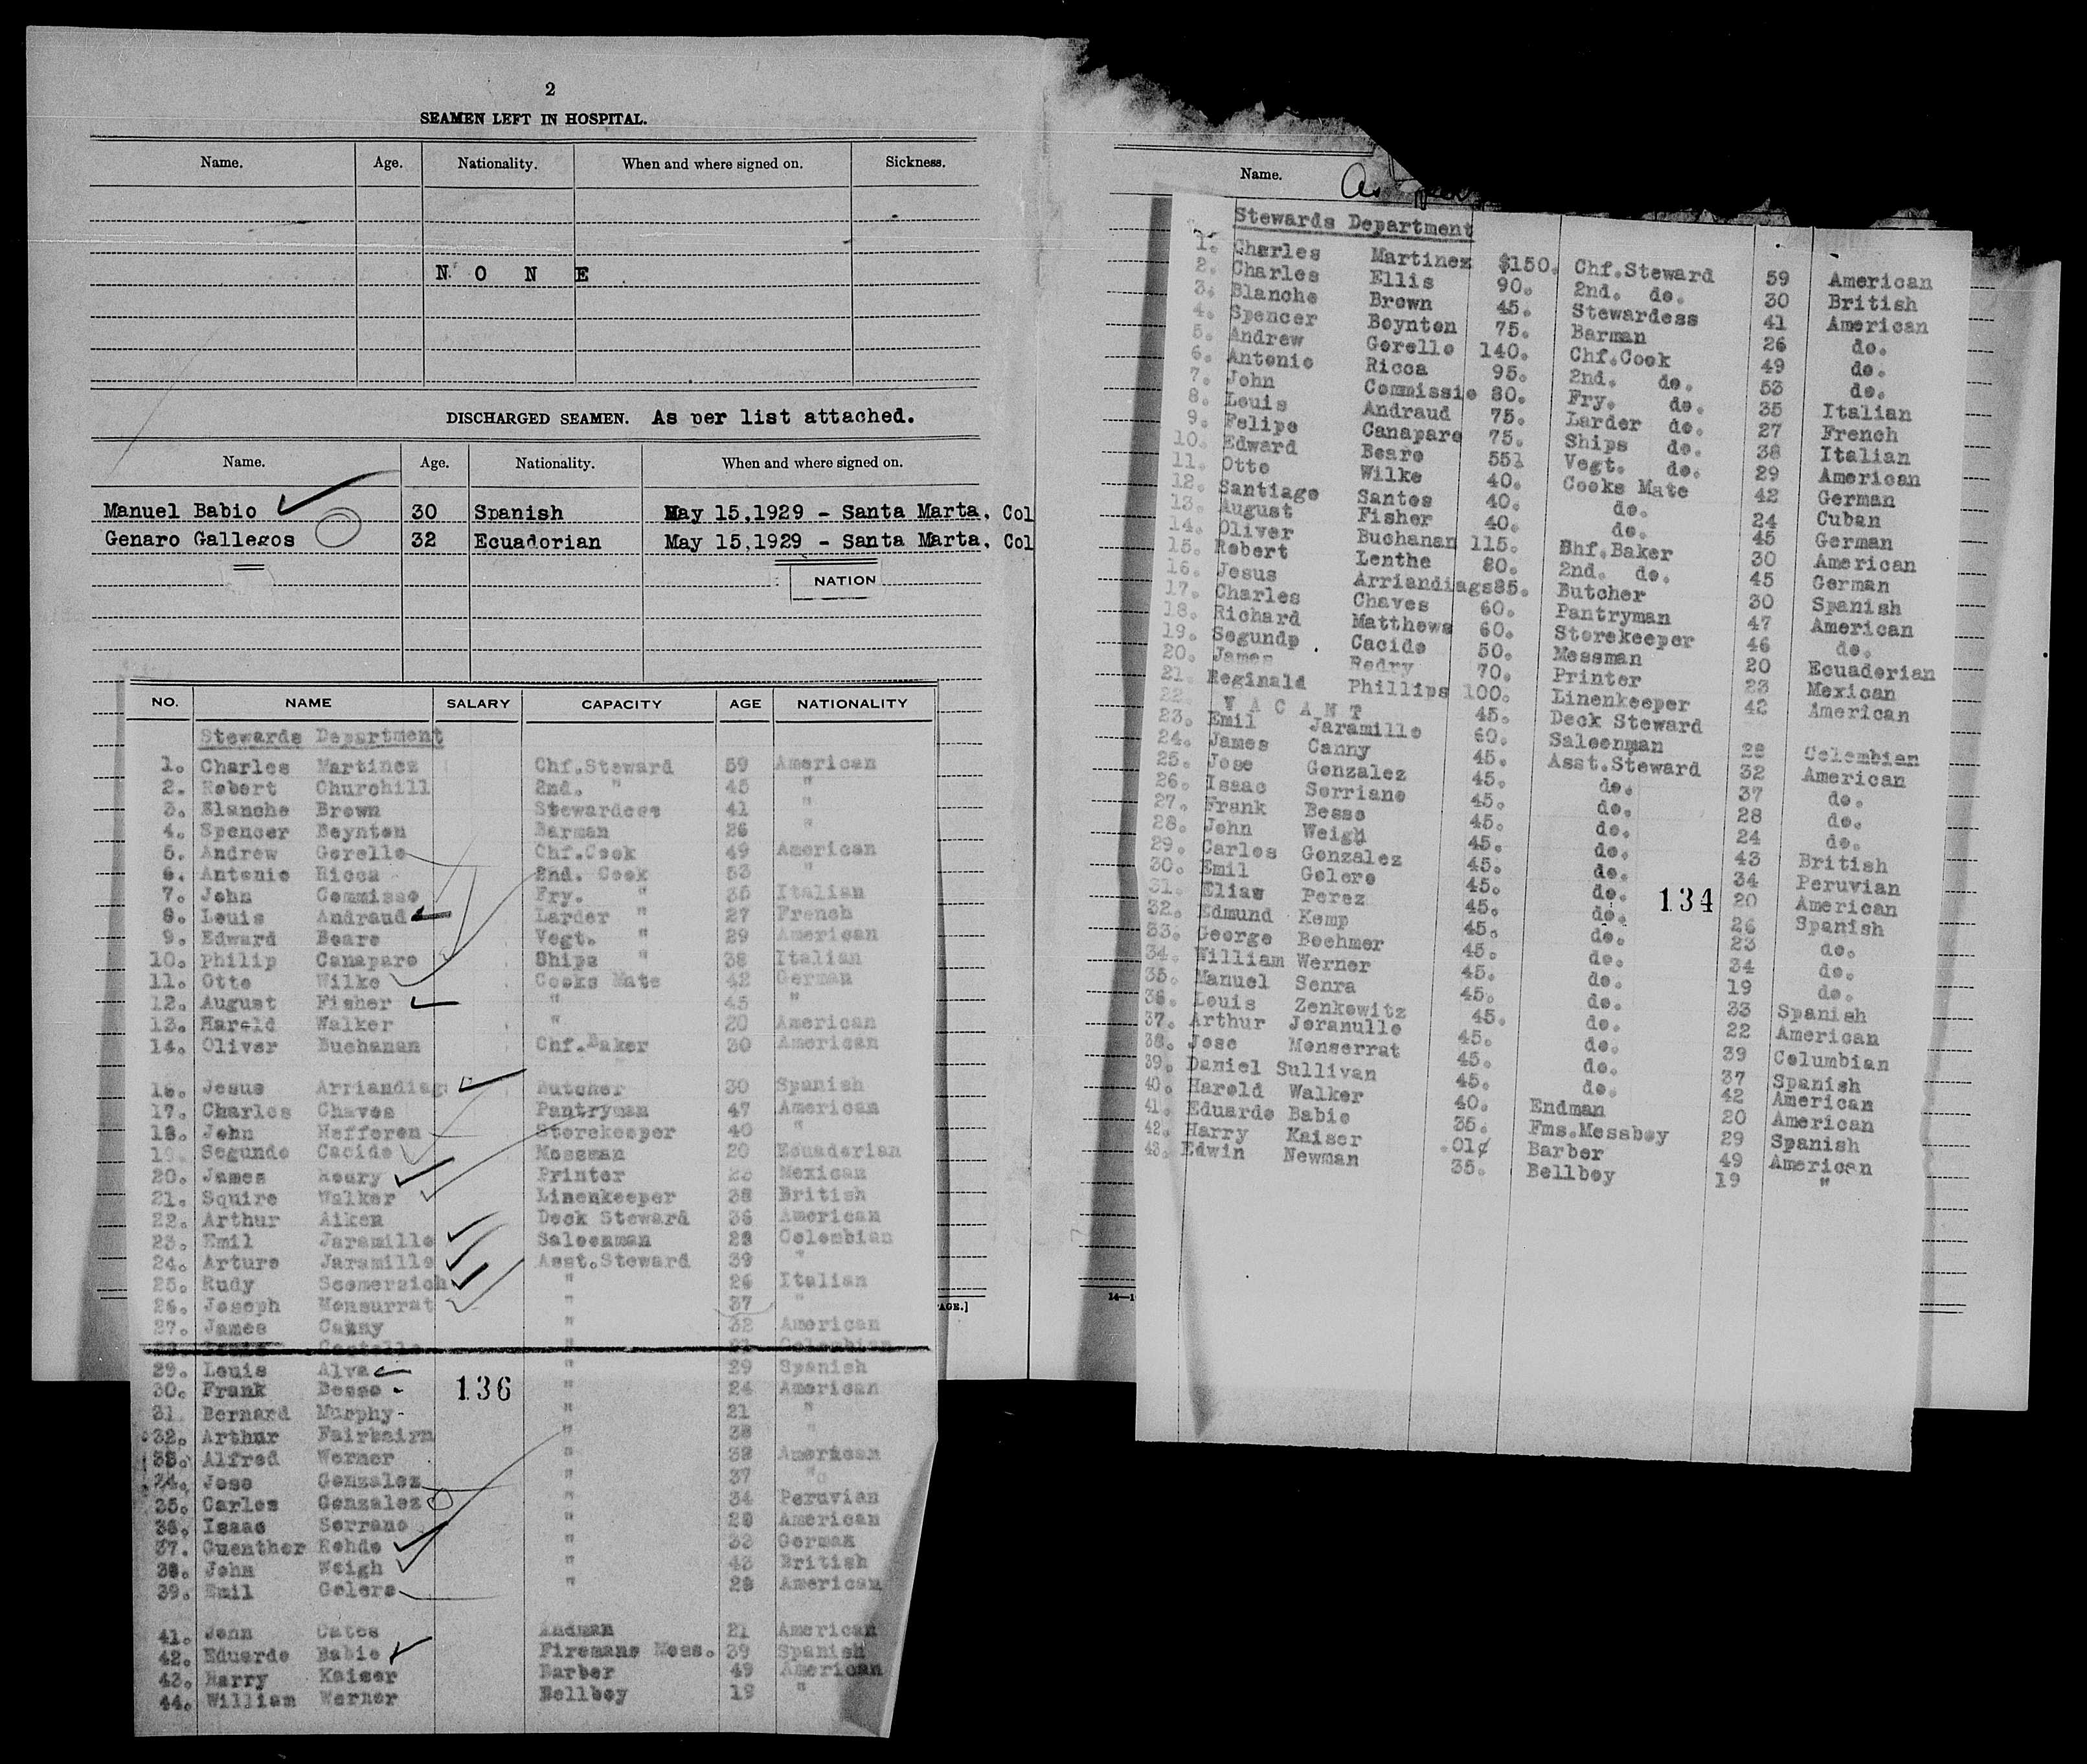 2
SEAMEN LEFT IN HOSPITAL.
Name. Age. Nationality. When and where signed on. Sickness.
N O N E
DISCHARGED SEAMEN. As per list attached.
Name. Age. Nationality. When and where signed on.
Manuel Babio 30 Spanish May 15,1929 - Santa Marta, Col
Genaro Gallegos 32 Ecuadorian May 15,1929 - Santa Marta, Col
NATION
NO. NAME SALARY CAPACITY AGE NATIONALITY
Stewards Department
1. Charles Martinez Chf.Steward 59 American
2. Robert Churchill 2nd. " 45 "
3. Blanche Brown Stewardess 41 "
4. Spencer Boynton Barman 26 "
5. Andrew Gorello Chf.Cook 49 American
6. Antonio Ricca 2nd. Cook 53 "
7. John Commisso Fry. " 35 Italian
8. Louis Andraud Larder " 27 French
9. Edward Beare Vegt. " 29 American
10. Philip Canapare Ships " 38 Italian
11. Otto Wilke Cooks Mate 42 German
12. August Fisher " 45 "
13. Harold Walker " 20 American
14. Oliver Buchanan Chf.Baker 30 American
16. Jesus Arriandiag Butcher 30 Spanish
17. Charles Chaves Pantryman 47 American
18. John Hefferen Storekeeper 40 "
19. Segundo Cacido Messman 20 Ecuadorian
20. James Reury Printer 23 Mexican
21. Squire Walker Linenkeeper 38 British
22. Arthur Aiken Deck Steward 36 American
23. Emil Jaramillo Saloonman 28 Colombian
24. Arturo Jaramillo Asst.Steward 39 "
25. Rudy Scomersich " 26 Italian
26. Joseph Monsurrat " 37 "
27. James Canny " 32 American
" 21 Colombian
29. Louis Alva " 29 Spanish
30. Frank Besso " 24 American
136
31 Bernard Murphy " 21 "
32. Arthur Fairbairn " 38 "
33. Alfred Werner " 32 American
34. Jose Gonzalez " 37 "
35. Carlos Gonzalez " 34 Peruvian
36. Isaac Serrano " 28 American
37. Guenther Rohde " 32 German
38. John Weigh " 43 British
39. Emil Golero " 28 American
41. John Cates Andman 21 American
42. Eduardo Babio Firemans Mess. 39 Spanish
43. Harry Kaiser Barber 49 American
44. William Werner Bellboy 19 "
AGE.]
Name. As per
Stewards Department
1. Charles Martinez $150. Chf.Steward 59 American
2. Charles Ellis 90. 2nd. do. 30 British
3. Blanche Brown 45. Stewardess 41 American
4. Spencer Boynton 75. Barman 26 do.
5. Andrew Gorello 140. Chf.Cook 49 do.
6. Antonio Ricca 95. 2nd. do. 53 do.
7. John Commissio 80. Fry. do. 35 Italian
8. Louis Andraud 75. Larder do. 27 French
9. Felipe Canapare 75. Ships do. 38 Italian
10. Edward Beare 55l Vegt. do. 29 American
11. Otto Wilke 40. Cooks Mate 42 German
12. Santiago Santos 40. do. 24 Cuban
13. August Fisher 40. do. 45 German
14. Oliver Buchanan 115. Bhf.Baker 30 American
15. Robert Lenthe 80. 2nd. do. 45 German
16. Jesus Arriandiags85. Butcher 30 Spanish
17. Charles Chaves 60. Pantryman 47 American
18. Richard Matthews 60. Storekeeper 46 do.
19. Segundp Cacido 50. Messman 20 Ecuadorian
20. James Redry 70. Printer 23 Mexican
21. Reginald Phillips 100. Linenkeeper 42 American
22. V A C A N T 45. Deck Steward
23. Emil Jaramillo 60. Saloonman 28 Colombian
24. James Canny 45. Asst.Steward 32 American
25. Jose Gonzalez 45. do. 37 do.
26. Isaac Serriano 45. do. 28 do.
27. Frank Besso 45. do. 24 do.
28. John Weigh 45. do. 43 British
29. Carlos Gonzalez 45. do. 34 Peruvian
30. Emil Golero 45. do. 20 American
134
31. Elias Perez 45. do. 26 Spanish
32. Edmund Kemp 45. do. 23 do.
33. George Boehmer 45. do. 34 do.
34. William Werner 45. do. 19 do.
35. Manuel Senra 45. do. 33 Spanish
36. Louis Zenkowitz 45. do. 22 American
37. Arthur Joranullo 45. do. 39 Columbian
38. Jose Monserrat 45. do. 37 Spanish
39. Daniel Sullivan 45. do. 42 American
40. Harold Walker 40. Endman 20 American
41. Eduardo Babio 35. Fms.Messboy 29 Spanish
42. Harry Kaiser .01¢ Barber 49 American
43. Edwin Newman 35. Bellboy 19 "